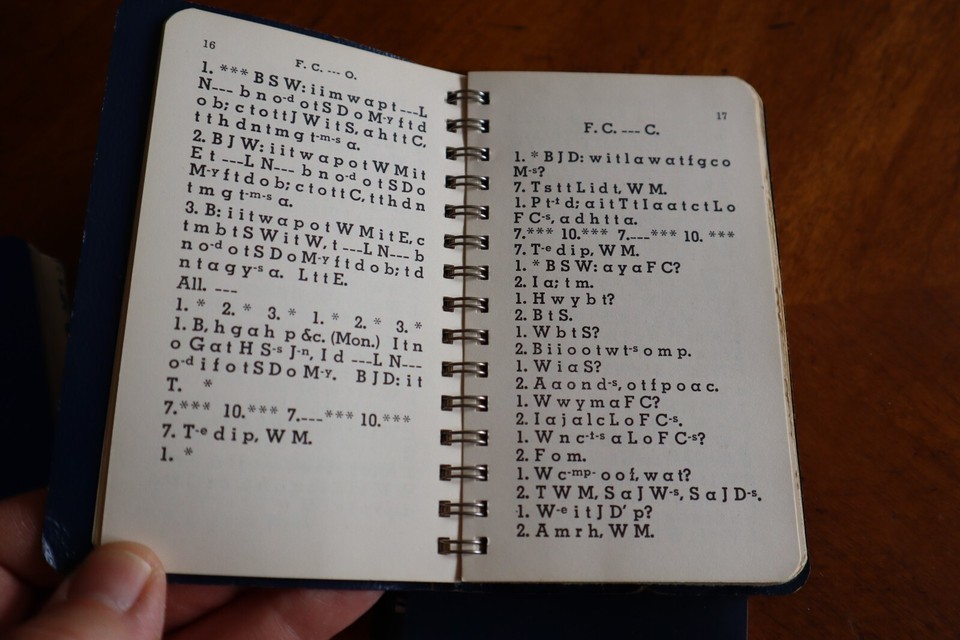 16
F. C. --- O.
1. *** B S W: i i m w a p t ---L
N--- b n o-d o t S D o M-y f t d
o b; c t o t t J W i t S, a h t t C,
t t h d n t m g t-m-s a.
2. B J W: i i t w a p o t W M i t
E t ---L N--- b n o-d o t S D o
M-y f t d o b; c t o t t C, t t h d n
t m g t-m-s a.
3. B: i i t w a p o t W M i t E, c
t m b t S W i t W, t ---L N--- b
n o-d o t S D o M-y f t d o b; t d
n t a g y-s a. L t t E.
All. ---
1. * 2. * 3. * 1. * 2. * 3. *
1. B, h g a h p &c. (Mon.) I t n
o G a t H S-s J-n, I d ---L N---
o-d i f o t S D o M-y. B J D: i t
T. *
7.*** 10.*** 7.---*** 10.***
7. T-e d i p, W M.
1. *
17
F. C. --- C.
1. * B J D: w i t l a w a t f g c o
M-s?
7. T s t t L i d t, W M.
1. P t-t d; a i t T t I a a t c t L o
F C-s, a d h t t a.
7.*** 10.*** 7.---*** 10. ***
7. T-e d i p, W M.
1. * B S W: a y a F C?
2. I a; t m.
1. H w y b t?
2. B t S.
1. W b t S?
2. B i i o o t w t-s o m p.
1. W i a S?
2. A a o n d-s, o t f p o a c.
1. W w y m a F C?
2. I a j a l c L o F C-s.
1. W n c-t-s a L o F C-s?
2. F o m.
1. W c-mp- o o f, w a t?
2. T W M, S a J W-s, S a J D-s.
1. W-e i t J D' p?
2. A m r h, W M.